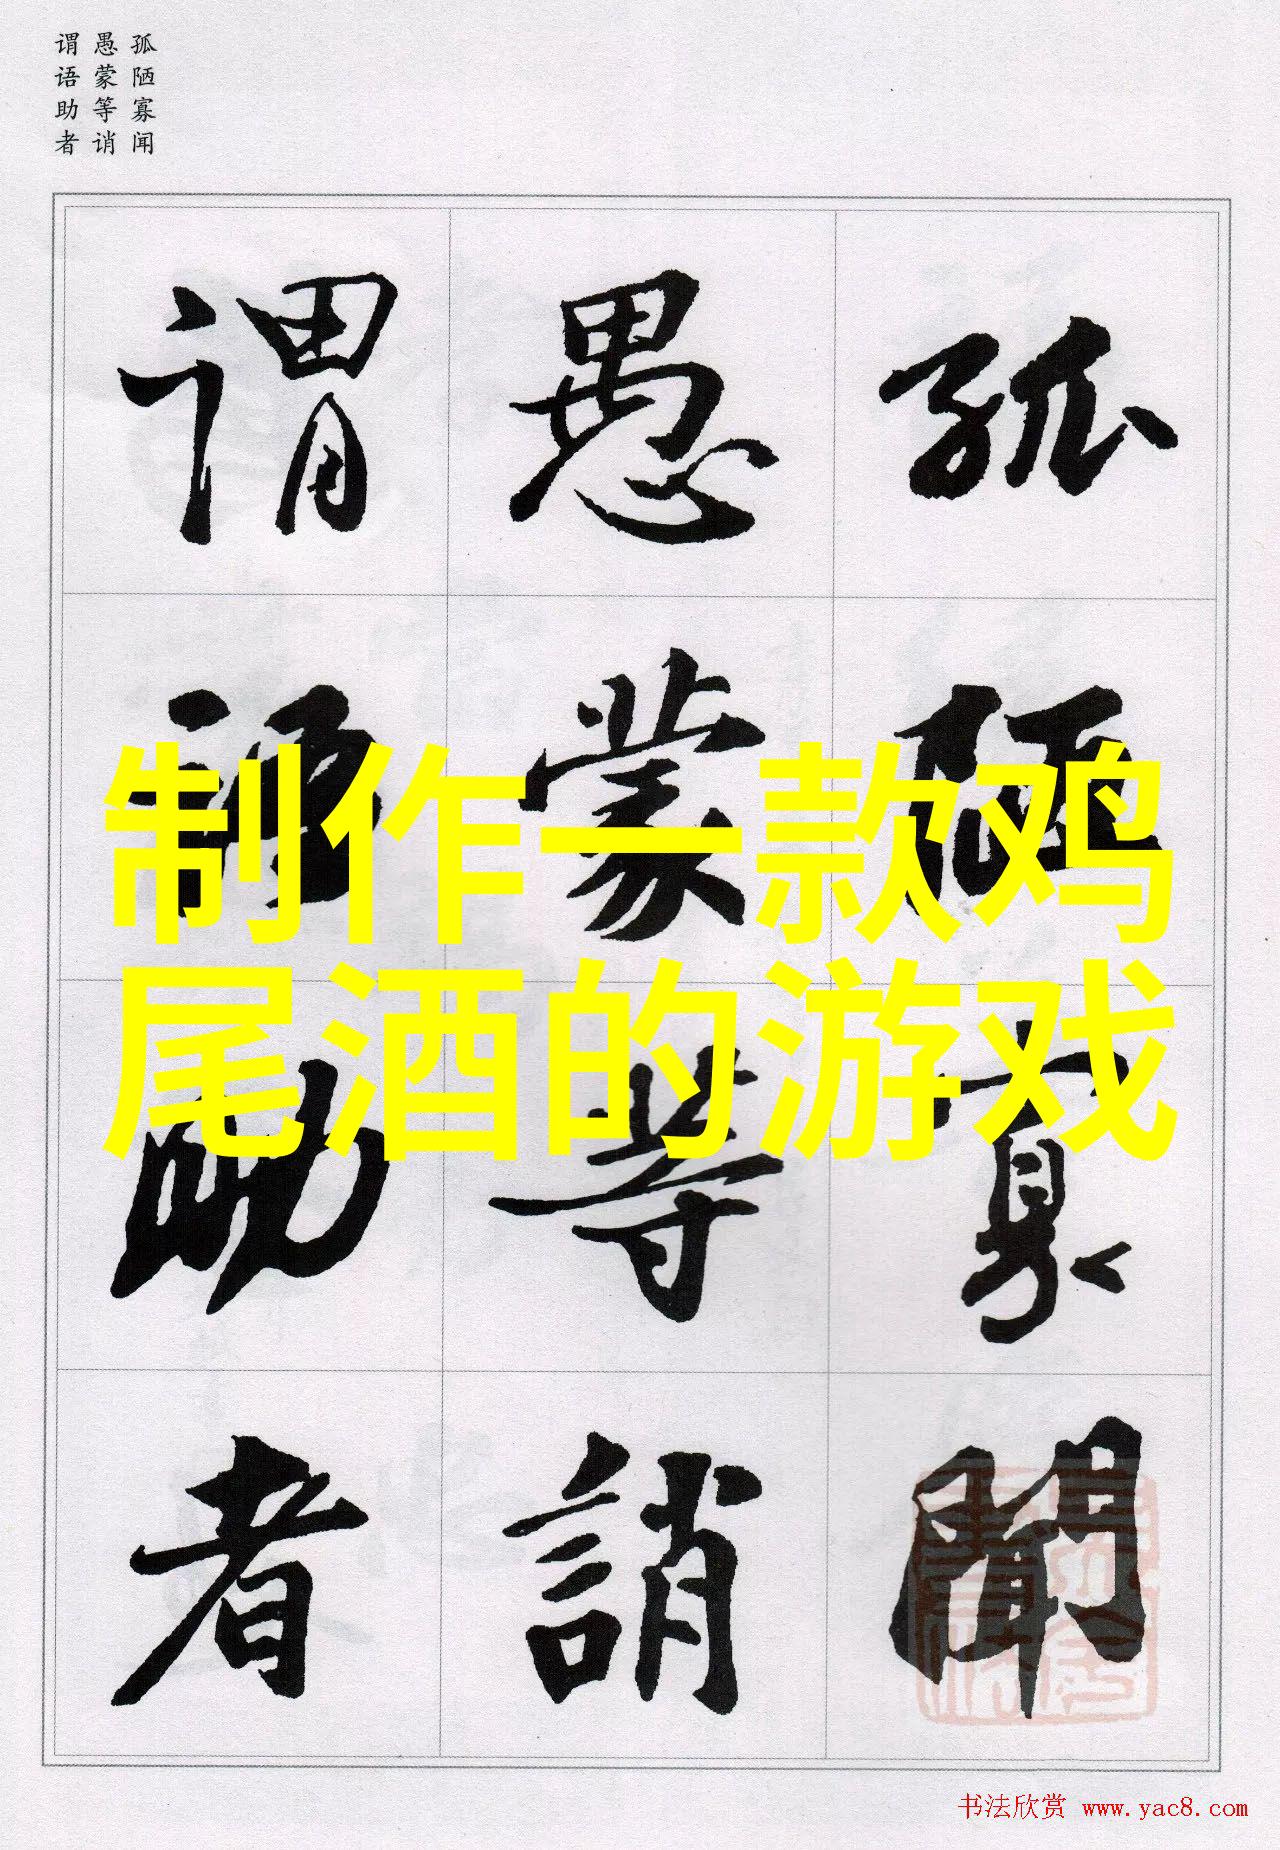 孤陋寡闻
愚蒙等诮
谓语助者
孤陋寡聞
愚蒙等誚
谓語助者
制作一款鸡
尾酒的游戏
书法欣赏 www.yac8.com